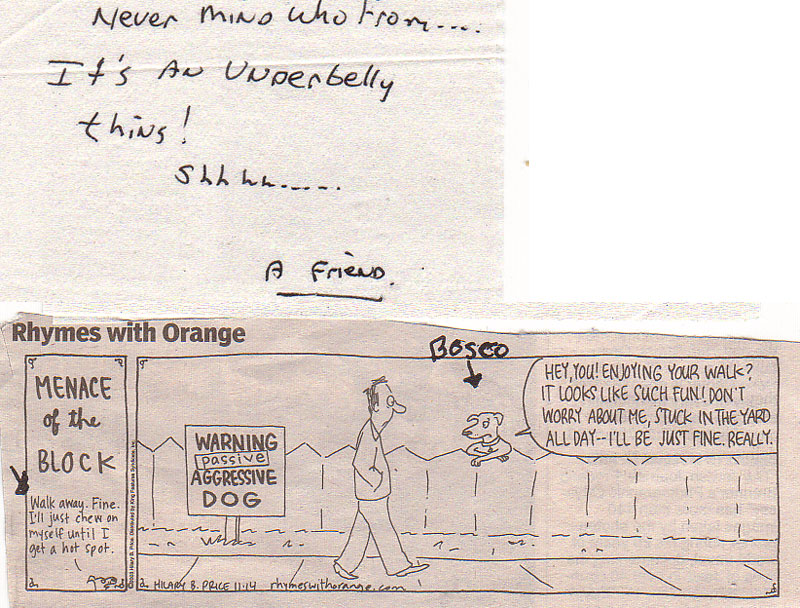 Never mind who from....
It's AN UNDerbelly
thing!
Shhhh.....
A FrieND.
Rhymes with Orange
MENACE
of the
BLOCK
Walk away. Fine.
I'll just chew on
myself until I
get a hot spot.
WARNING
passive
AGGRESSIVE
DOG
BOSCO
HEY, YOU! ENJOYING YOUR WALK?
IT LOOKS LIKE SUCH FUN! DON'T
WORRY ABOUT ME, STUCK IN THE YARD
ALL DAY--I'LL BE JUST FINE. REALLY.
HILARY B. PRICE 11·14 rhymeswithorange.com